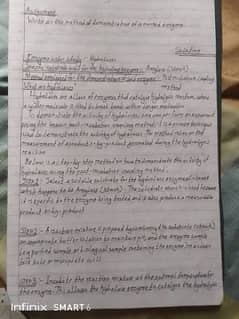 Assignment
Write on the method of demonstration of a named enzyme
Solution
Enzyme under study - Hydrolases
Enzyme substrate used for the hydrolase enzyme: Amylose (starch)
Method employed for the demonstration of said enzyme: Post-incubation coupling method
What are hydrolases
Hydrolases are a class of enzymes that catalyze hydrolysis reactions, where a water molecule is used to break bonds within larger molecules
To demonstrate the activity of hydrolases, one can perform an experiment using the post-incubation coupling method. It is a proven technique used to demonstrate the activity of hydrolases. This method relies on the measurement of a product or by-product generated during the hydrolysis reaction
Below is a step-by-step method on how to demonstrate the activity of hydrolases using the post-incubation coupling method
Step 1: Select a suitable substrate for the hydrolase enzyme of interest which happens to be Amylose (starch). The substrate should be used because it is specific to the enzyme being tested and it also produce a measurable product or by-product
Step 2: A reaction mixture is prepared by combining the substrate (starch), an appropriate buffer solution to maintain pH, and the enzyme sample
Step 3: Incubate the reaction mixture at the optimal temperature for the enzyme. This allows the hydrolase enzyme to catalyze the hydrolysis
Infinix SMART 6